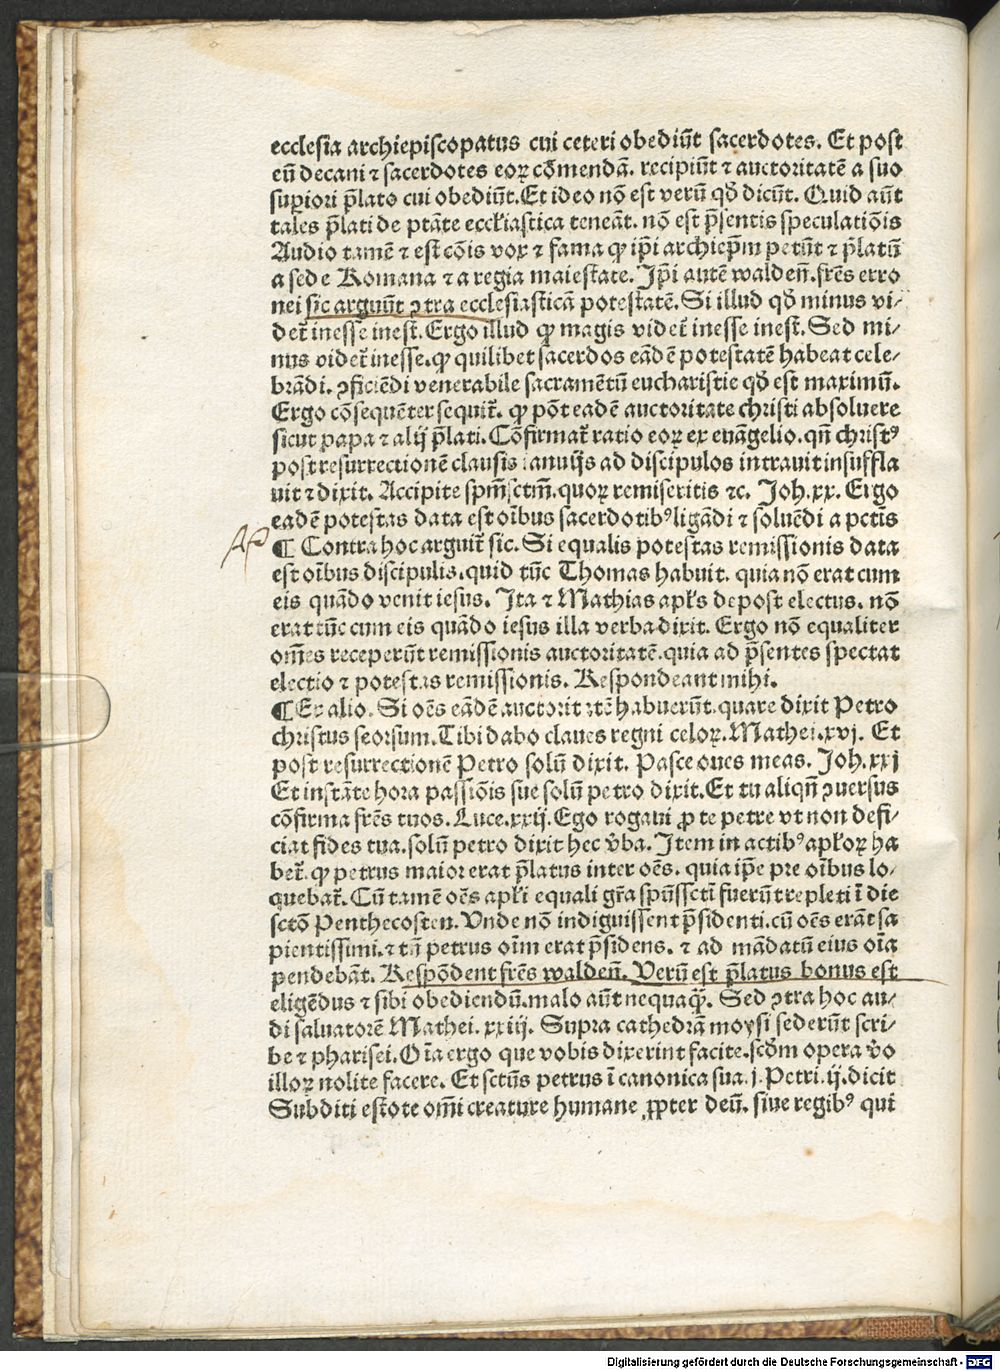 ecclesia archiepiscopatus cui ceteri obediūt sacerdotes. Et post
eū decani ⁊ sacerdotes eoꝝ cōmendā. recipiūt ⁊ auctoritatē a suo
suꝑiori p̄lato cui obediūt. Et ideo nō est verū qď dicūt. Quid aūt
tales p̄lati de ptāte eccƚiastica teneāt. nō est p̄sentis speculatiōis
Audio tamē ⁊ est cōis vox ⁊ fama ꝙ ip̄i archiep̄m petūt ⁊ p̄latū
a sede Romana ⁊ a regia maiestate. Ip̄i autē waldeñ. fr̄es erro
nei sic arguūt ꝯtra ecclesiasticā potestatē. Si illud qď minus vi⸗
det̄ inesse inest. Ergo illud ꝙ magis videt̄ inesse inest. Sed mi⸗
nus videt̄ inesse. ꝙ quilibet sacerdos eādē potestatē habeat cele⸗
brādi. ꝯficiēdi venerabile sacramētū eucharistie qď est maximū.
Ergo cōsequēter sequit̄. ꝙ pōt eadē auctoritate christi absoluere
sicut papa ⁊ alij p̄lati. Cōfirmat̄ ratio eoꝝ ex euāgelio. qn̄ christꝰ
post resurrectionē clausis ianuijs ad discipulos intrauit insuffla
uit ⁊ dixit. Accipite spm̄ sctm̄. quoꝝ remiseritis ⁊c. Joh. xx. Ergo
eadē potestas data est oībus sacerdotibꝰ ligādi ⁊ soluēdi a pctīs
¶ Contra hoc arguit̄ sic. Si equalis potestas remissionis data
est oībus discipulis. quid tūc Thomas habuit. quia nō erat cum
eis quādo venit iesus. Ita ⁊ Mathias apƚs depost electus. nō
erat tūc cum eis quādo iesus illa verba dixit. Ergo nō equaliter
om̄es receperūt remissionis auctoritatē. quia ad p̄sentes spectat
electio ⁊ potestas remissionis. Respondeant mihi.
¶ Ex alio. Si oēs eādē auctoritatē habuerūt. quare dixit Petro
christus seorsum. Tibi dabo claues regni celoꝝ. Mathei. xvj. Et
post resurrectionē Petro solū dixit. Pasce oues meas. Joh. xxj
Et instāte hora passiōis sue solū petro dixit. Et tu aliqn̄ ꝯuersus
cōfirma fr̄es tuos. Luce. xxij. Ego rogaui ꝓ te petre vt non defi⸗
ciat fides tua. solū petro dixit hec v̄ba. Item in actibꝰ apƚoꝝ ha
bet̄. ꝙ petrus maior erat p̄latus inter oēs. quia ip̄e pre oībus lo⸗
quebat̄. Cū tamē oēs apƚi equali gr̄a spūssctī fuerūt repleti ī die
sctō Penthecosten. Vnde nō indiguissent p̄sidenti. cū oēs erāt sa
pientissimi. ⁊ tn̄ petrus oīm erat p̄sidens. ⁊ ad mādatū eius oīa
pendebāt. Respōdent fr̄es waldeñ. Verū est p̄latus bonus est
eligēdus ⁊ sibi obediendū. malo aūt nequaq̄. Sed ꝯtra hoc au⸗
di saluatorē Mathei. xxiij. Supra cathedrā moysi sederūt scri⸗
be ⁊ pharisei. Oīa ergo que vobis dixerint facite. scďm opera v̄o
illoꝝ nolite facere. Et sctūs petrus ī canonica sua. j. Petri. ij. dicit
Subditi estote om̄i creature humane ꝓpter deū. siue regibꝰ qui
Digitalisierung gefördert durch die Deutsche Forschungsgemeinschaft - DFG